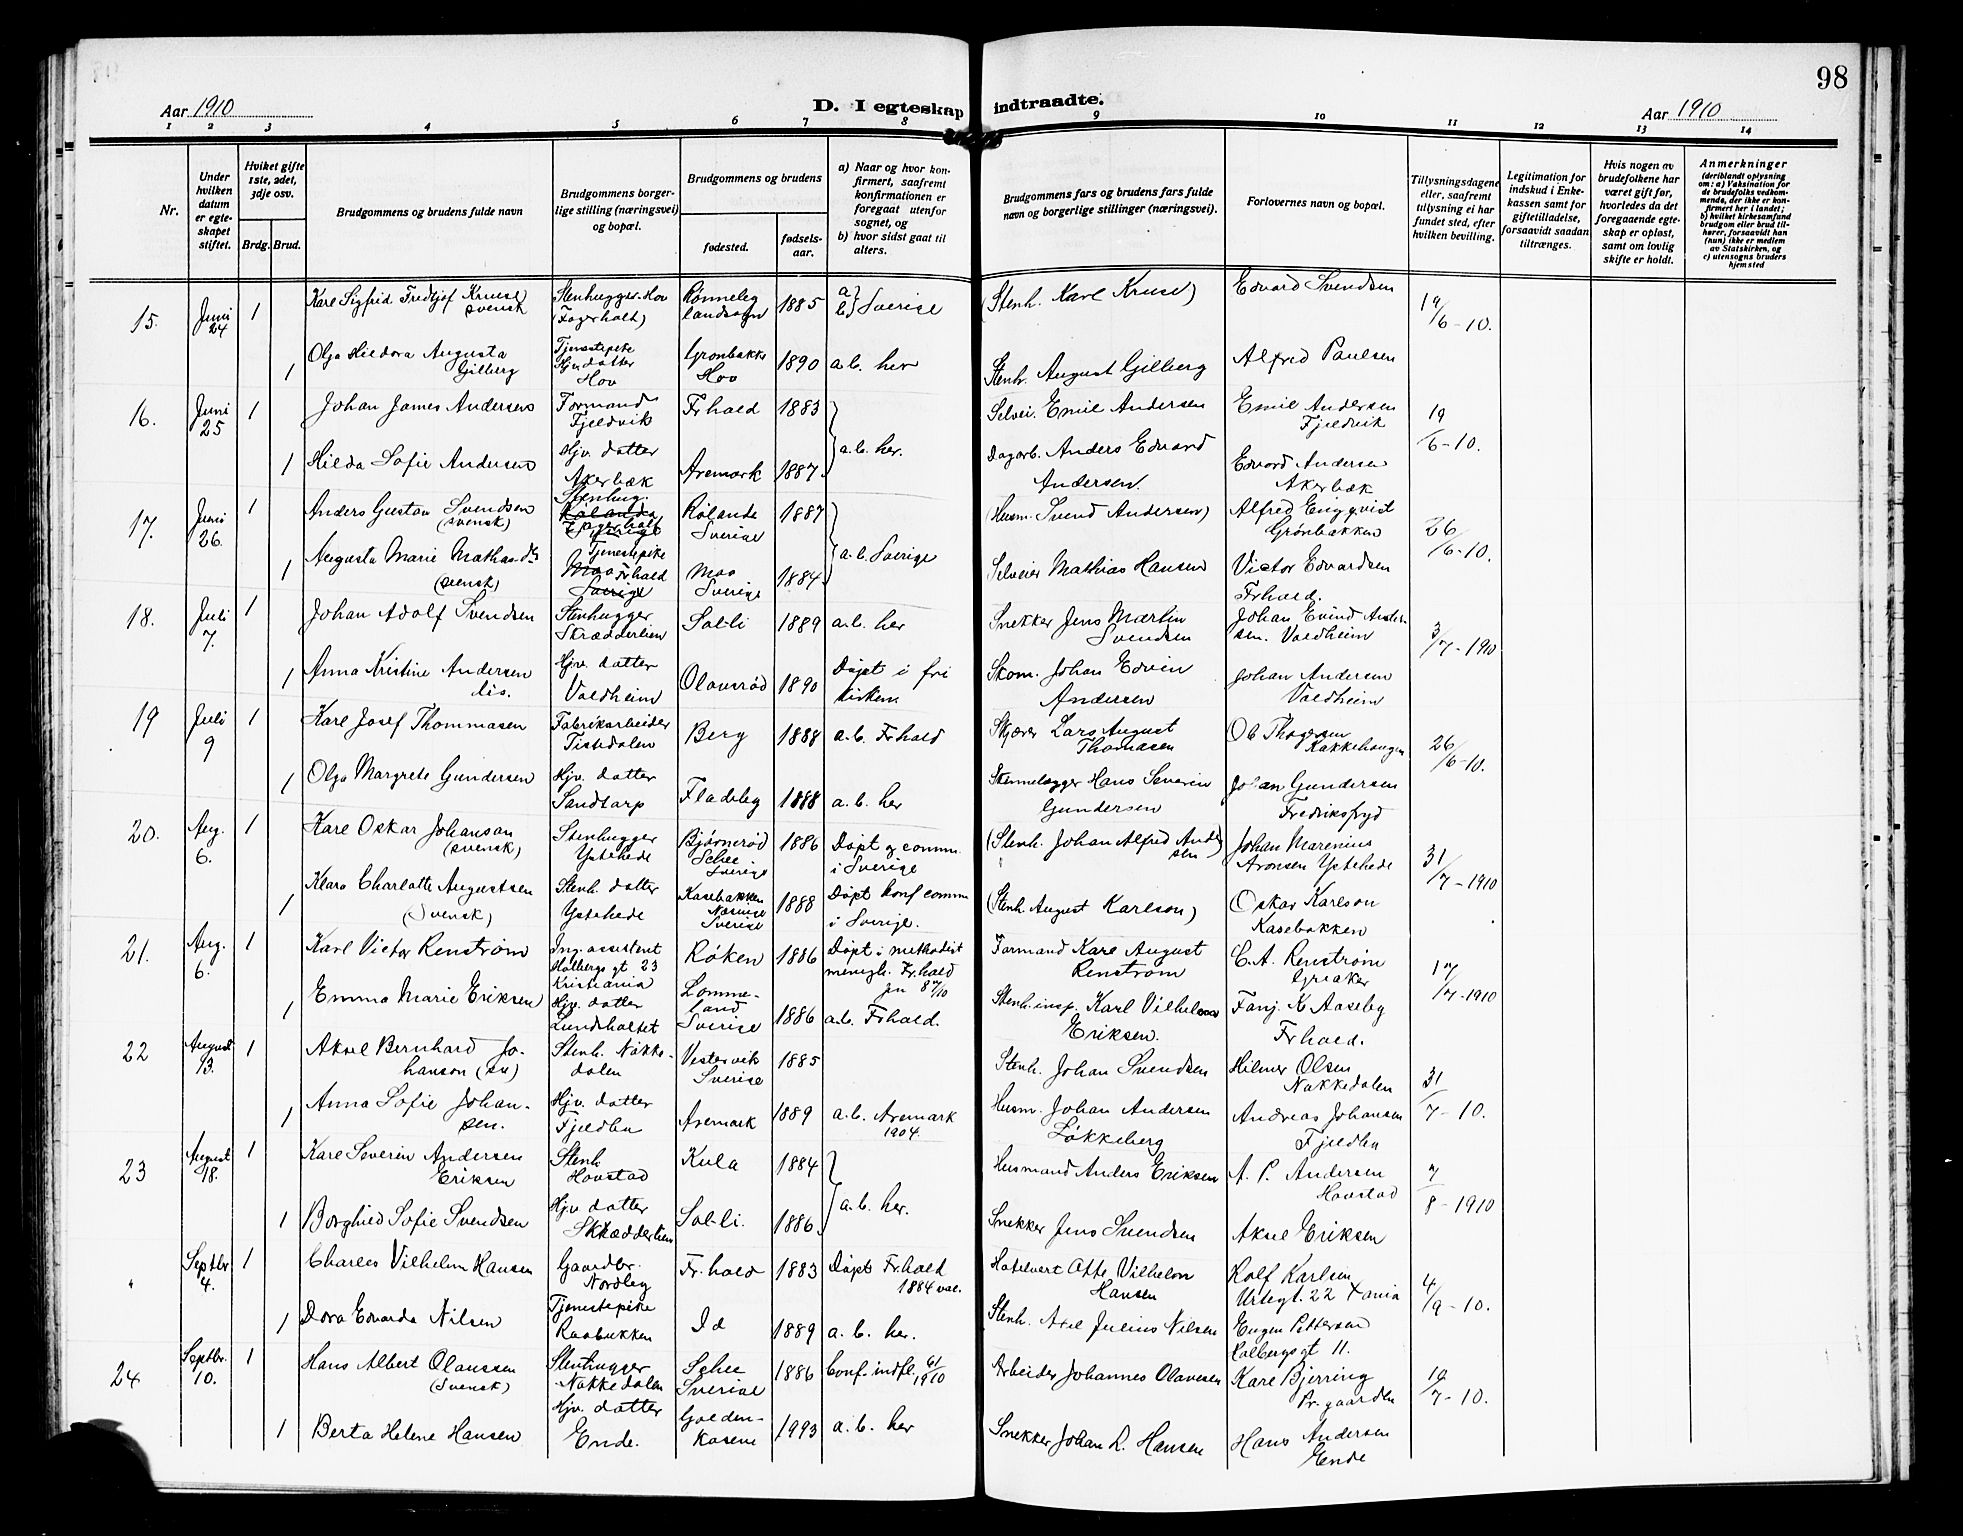 98
Aar 1910
D. I egteskap indtraadte.
Aar 1910
1 2 3 4 5 6 7 8 9 10 11 12 13 14
Nr.
Under hvilken datum er egteskapet stiftet.
Hvilket gifte 1ste, 2det, 3dje osv.
Brdg. Brud.
Brudgommens og brudens fulde navn
Brudgommens borgerlige stilling (næringsvei) og bopæl.
Brudgommens og brudens
fødested.
fødselsaar.
a) Naar og hvor konfirmert, saafremt konfirmationen er foregaat utenfor sognet, og
b) hvor sidst gaat til alters.
Brudgommens fars og brudens fars fulde navn og borgerlige stillinger (næringsvei).
Forlovernes navn og bopæl.
Tillysningsdagene eller, saafremt tillysning ei har fundet sted, efter hvilken bevilling.
Legitimation for indskud i Enkekassen samt for giftetilladelse, forsaavidt saadan tiltrænges.
Hvis nogen av brudefolkene har været gift før, hvorledes da det foregaaende egteskap er opløst, samt om lovlig skifte er holdt.
Anmerkninger
(deriblandt oplysning om: a) Vaksination for de brudefolks vedkommende, der ikke er konfirmert her i landet; b) hvilket kirkesamfund brudgom eller brud tilhører, forsaavidt han (hun) ikke er medlem av Statskirken, og c) utensogns bruders hjemsted
15. Juni 24 1 Karl Sigfrid Fredtjof Kruse svensk Stenhugger Hov (Fagerholt) Rønneleg landsogn 1885 a) b) Sverige (Stenh. Karl Kruse) Edvard Svendsen 19/6-10.
1 Olga Hildora Augusta Gilberg Tjenestepike Hjv datter Hov Grønbakke Hov 1890 a.b. her Stenh. August Gilberg Alfred Paulsen
16. Juni 25 1 Johan James Andersen Formand Fjeldvik Fr.hald 1883 a.b. her. Selvei. Emil Andersen Emil Andersen Fjeldvik 19/6-10.
1 Hilda Sofie Andersen Hjv. datter Akerbæk Aremark 1887 Dagarb. Anders Edvard Andersen. Edvard Andersen Akerbæk
17. Juni 26. 1 Anders Gustav Svendsen (svensk) Stenhug. Rølanda Sverige 1887 a.b. Sverige (Husm. Svend Andersen) Alfred Engqvist Grønbakken 26/6-10.
1 Augusta Marie Mathiasdtr (svensk) Tjenestepike Moo Fr.hald Sverige Moo Sverige 1884 Selveier Mathias Hansen Victor Edvardsen Frhald.
18. Juli 7. 1 Johan Adolf Svendsen Stenhugger Skrædderlien Sol-li 1889 a.b. her Snekker Jens Martin Svendsen Johan Evind Andersen. Valdheim 3/7-1910
1 Anna Kristine Andersen dis. Hjv. datter Valdheim Olavsrød 1890 Døpt i frikirken Skom. Johan Edvin Andersen Johan Andersen Valdheim
19 Juli 9 1 Karl Josef Thommasen Fabrikarbeider Tistedalen Berg 1888 a.b. Frhald Skjærer Lars August Thomasen Ol Thogersen Kakkehaugen 26/6-10.
1 Olga Margrete Gundersen Hjv. datter Sandtorp Fladeby 1888 a.b. her Hans Severin Gundersen Johan Gundersen Fredriksfryd
20. Aug. 6. 1 Karl Oskar Johanson (svensk) Stenhugger Ystehede Bjørnerød Schee Sverige 1886 Døpt og comm. i Sverige (Stenh. Johan Alfred Andersen) Johan Marenius Aronsen Ystehede 31/7-1910
1 Klara Charlotte Augustsen (Svensk) Stenh. datter Ystehede Kasebakken Næsinge Sverige 1888 Døpt konf comm i Sverige. (Stenh. August Karlson) Oskar Karlson Kasebakken
21. Aug. 6. 1 Karl Victor Renstrøm Ing. assistent Holbergs gt 23 Kristiania Røken 1886 Døpt i methodist menigh. Fr.hald Formand Karl August Renstrøm C. A. Renstrøm Greaker 17/7-1910
1 Emma Marie Eriksen Hjv. datter Lundholtet Lommeland Sverige 1886 a.b. Frhald. Stenh.insp. Karl Vilhelm Eriksen. Fanj. K Aaseby Frhald.
22 August 13. 1 Aksel Bernhard Johanson (sv) Stenh. Nakkedalen Vestervik Sverige 1885 Stenh. Johan Svendsen Hilmer Olsen Nakkedalen 31/7-10.
1 Anna Sofie Johansen. Hjv. datter Fjeldhu Aremark 1889 a.b. Aremark 1904. Husm. Johan Andersen Løkkeberg Andreas Johansen Fjeldhu
23 August 18. 1 Karl Severin Andersen Eriksen Stenh Hovstad Kula 1884 a.b. her. Husmand Anders Eriksen A. P. Andersen Hovstad 7/8-1910
1 Borghild Sofie Svendsen Hjv datter Skrædderlien Sol-li. 1886. Snekker Jens Svendsen Aksel Eriksen
Septbr. 4. 1 Charles Vilhelm Hansen Gaardbr. Nordleg Fr.hald 1883 Døpt Fr.hald 1884 Hotelvert Otto Vilhelm Hansen Rolf Karlsen Urtegt. 22 Xania 4/9-10.
1 Dora Edvarda Nilsen Tjenestepike Raabækken Id 1889 a.b. her. Stenh. Axel Julius Nilsen Eugen Pettersen Holbergsgt 11.
24 Septbr. 10. 1 Hans Albert Olaussen (Svensk) Stenhugger Nakkedalen Schee Sverige 1886 Conf. indfl. Arbeider Johannes Olavesen Karl Bjerring Pr.gaarden 19/7-10.
1 Berta Helene Hansen Hjv. datter Ende. Goldenkasene 1993 a.b. her Snekker Johan L. Hansen Hans Andersen Ende